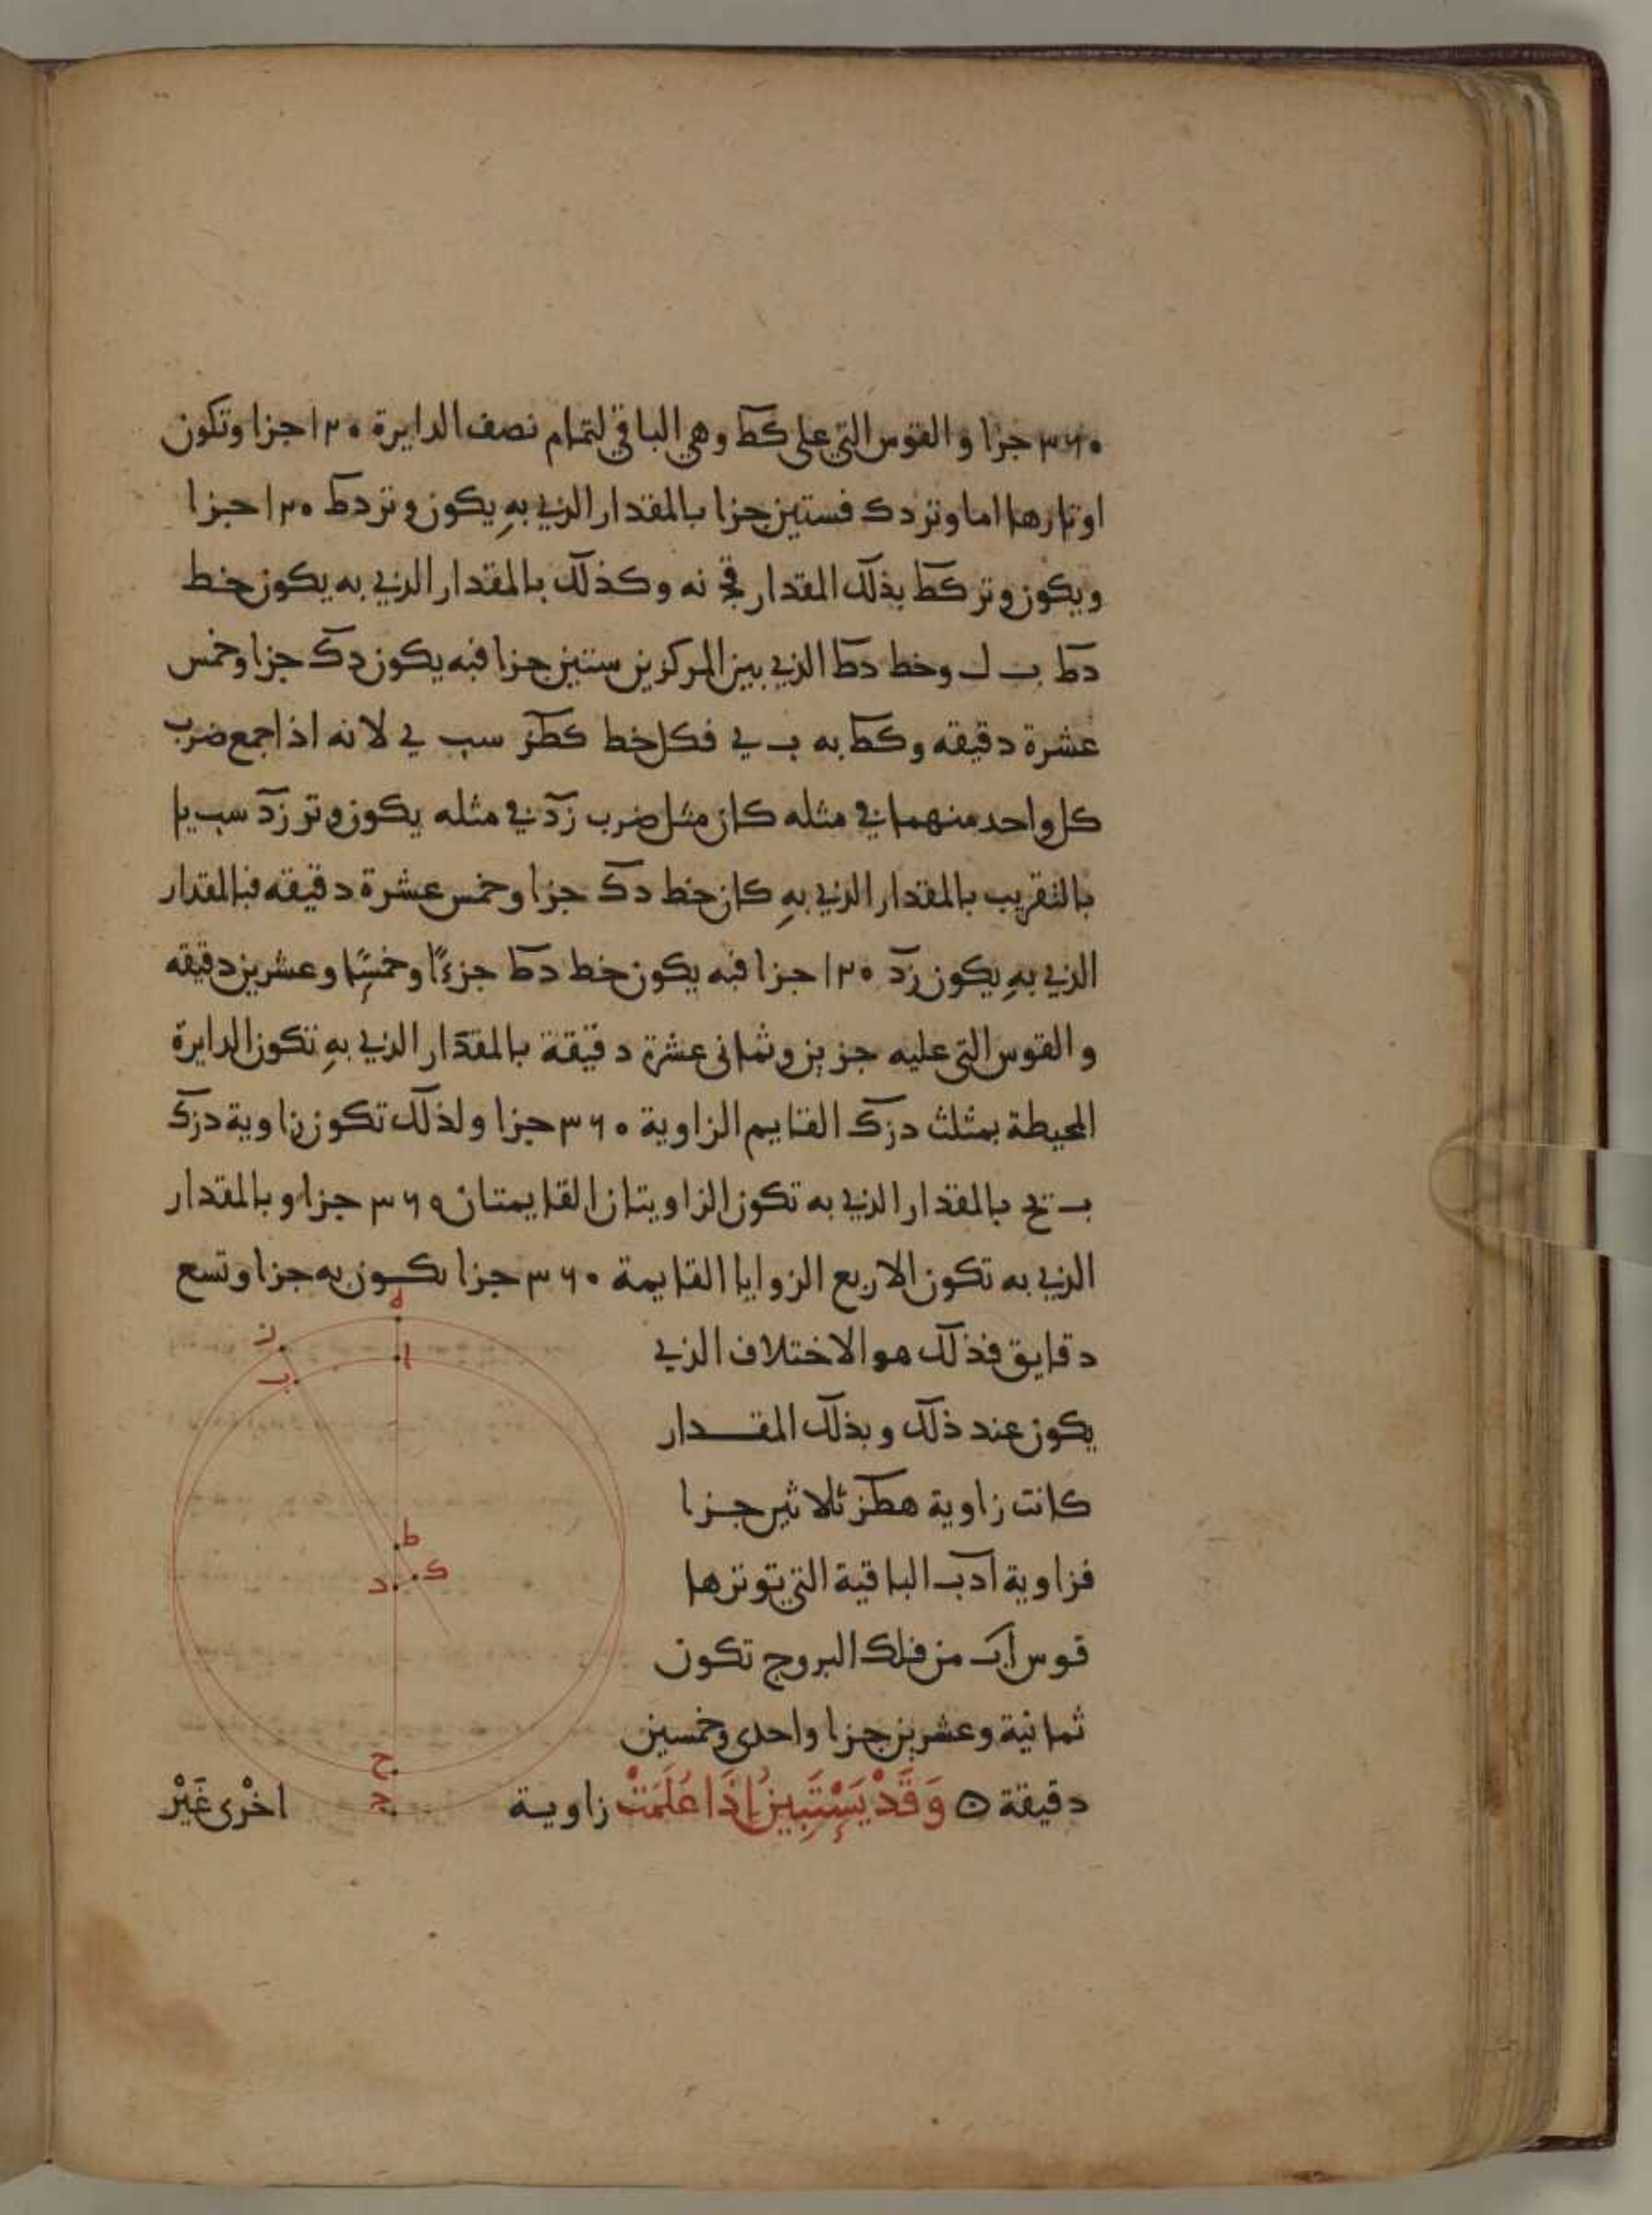 ٣٦٠ جزا و القوس التي على كط وهي الباقي لتمام نصف الدايرة ١٢٠ جزا وتكون
اوتارها اما وتر دك فستين جزا بالمقدار الذي به يكون وتر دط ١٢٠ جزا
ويكون وتر كط بذلك المقدار قج نه وكذلك بالمقدار الذي به يكون خط
دط ب ل وخط دط الذي بين المركزين ستين جزا فبه يكون دك جزا وخمس
عشرة دقيقه وكط به ب ي فكل خط كطز سب ي لانه اذا جمع ضرب
كل واحد منهما في مثله كان مثل ضرب زد في مثله يكون وتر زد سب يا
بالتقريب بالمقدار الذي به كان خط دك جزا وخمس عشرة دقيقه فبالمقدار
الذي به يكون زد ١٢٠ جزا فبه يكون خط دط جزءًا وخمسًا وعشرين دقيقه
و القوس التي عليه جزين وثماني عشرة دقيقة بالمقدار الذي به تكون الدايرة
المحيطة بمثلث دزك القايم الزاوية ٣٦٠ جزا ولذلك تكون زاوية دزك
ب يح بالمقدار الذي به تكون الزاويتان القايمتان ٣٦٠ جزا وبالمقدار
الذي به تكون الاربع الزوايا القايمة ٣٦٠ جزا يكون به جزا وتسع
دقايق فذلك هو الاختلاف الذي
يكون عند ذلك وبذلك المقدار
كانت زاوية هطز ثلاثين جزا
فزاوية ادب الباقية التي توترها
قوس اب من فلك البروج تكون
ثمانية وعشرين جزا واحدى وخمسين
دقيقة ه وَقَدْ يَسْتَبِينُ اِذَا عُلِمَتْ زاوية اخْرى غَيْر
ه
ا
ز
ب
ط
ك
د
ح
ج